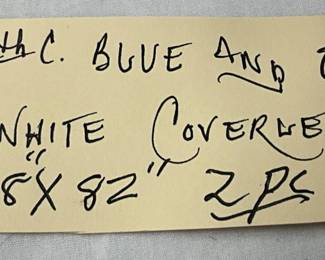 th C. BLUE AND
WHITE COVERLE
8" X 82" 2 PC